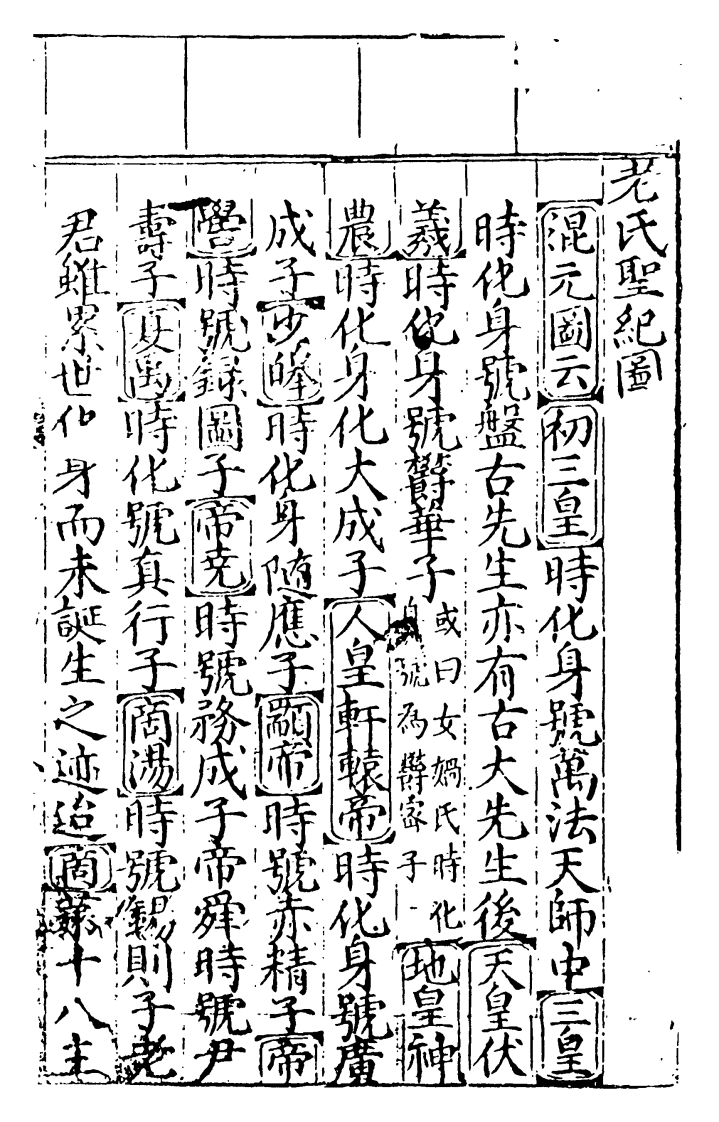 老氏聖紀圖
混元圖云初三皇時化身號萬法天師中三皇
時化身號盤古先生亦有古大先生後天皇伏
羲時化身號欝華子或曰女媧氏時化身號為欝密子地皇神
農時化身化大成子人皇軒轅帝時化身號廣
成子少皞時化身随應子顓帝時號赤精子帝
嚳時號錄圖子帝堯時號務成子帝舜時號尹
壽子夏禹時化號真行子商湯時號錫則子老
君雖累世化身而未誕生之迹迨商十八主